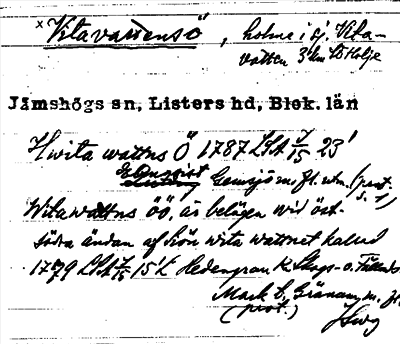 x Vitavattensö, holme i sj. Vita-
vatten 3 km
Jämshögs sn, Listers hd, Blek. län
Hwita wattns Ö 1787 LSA 7/15 23'
Gemsjö m. fl. utm. (prot. s. 1)
Wita wattns ÖÖ, är belägen wid öst-
södra ändan af Siön wita wattnet kallad
1779 LSA 7/15 15't Hedengran K. Skogs- o.
Mark b. Gränum m. fl.
(prot.)